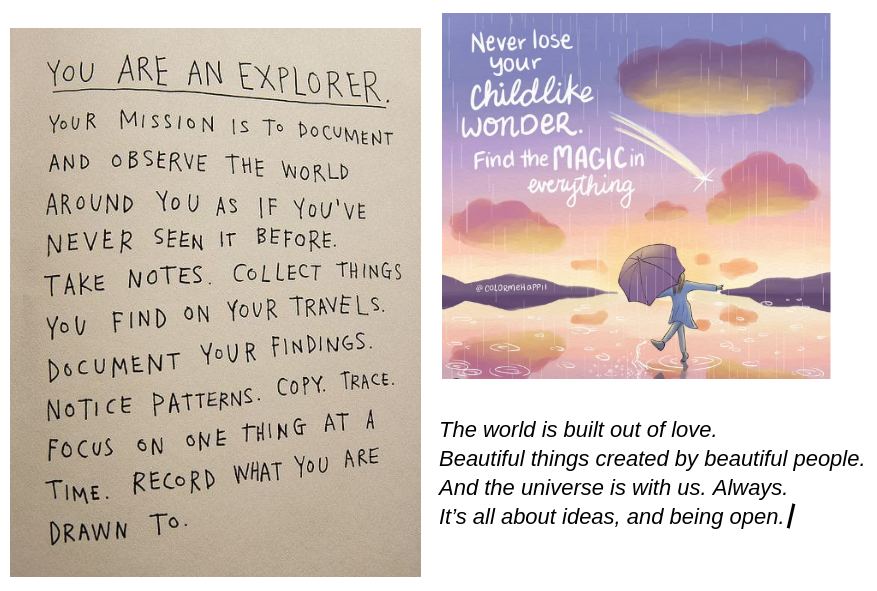 YOU ARE AN EXPLORER.
YOUR MISSION IS TO DOCUMENT
AND OBSERVE THE WORLD
AROUND YOU AS IF YOU'VE
NEVER SEEN IT BEFORE.
TAKE NOTES. COLLECT THINGS
YOU FIND ON YOUR TRAVELS.
DOCUMENT YOUR FINDINGS.
NOTICE PATTERNS. COPY. TRACE.
FOCUS ON ONE THING AT A
TIME. RECORD WHAT YOU ARE
DRAWN TO.
Never lose
your
childlike
WONDER.
Find the MAGIC in
everything
@COLORMEHAPPII
The world is built out of love.
Beautiful things created by beautiful people.
And the universe is with us. Always.
It's all about ideas, and being open.